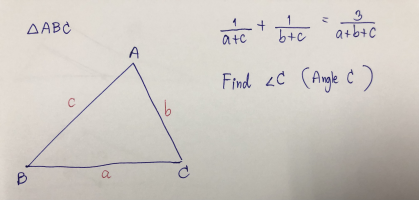 △ABC
1/(a+c) + 1/(b+c) = 3/(a+b+c)
Find ∠C (Angle C)
A
c
b
B
a
C